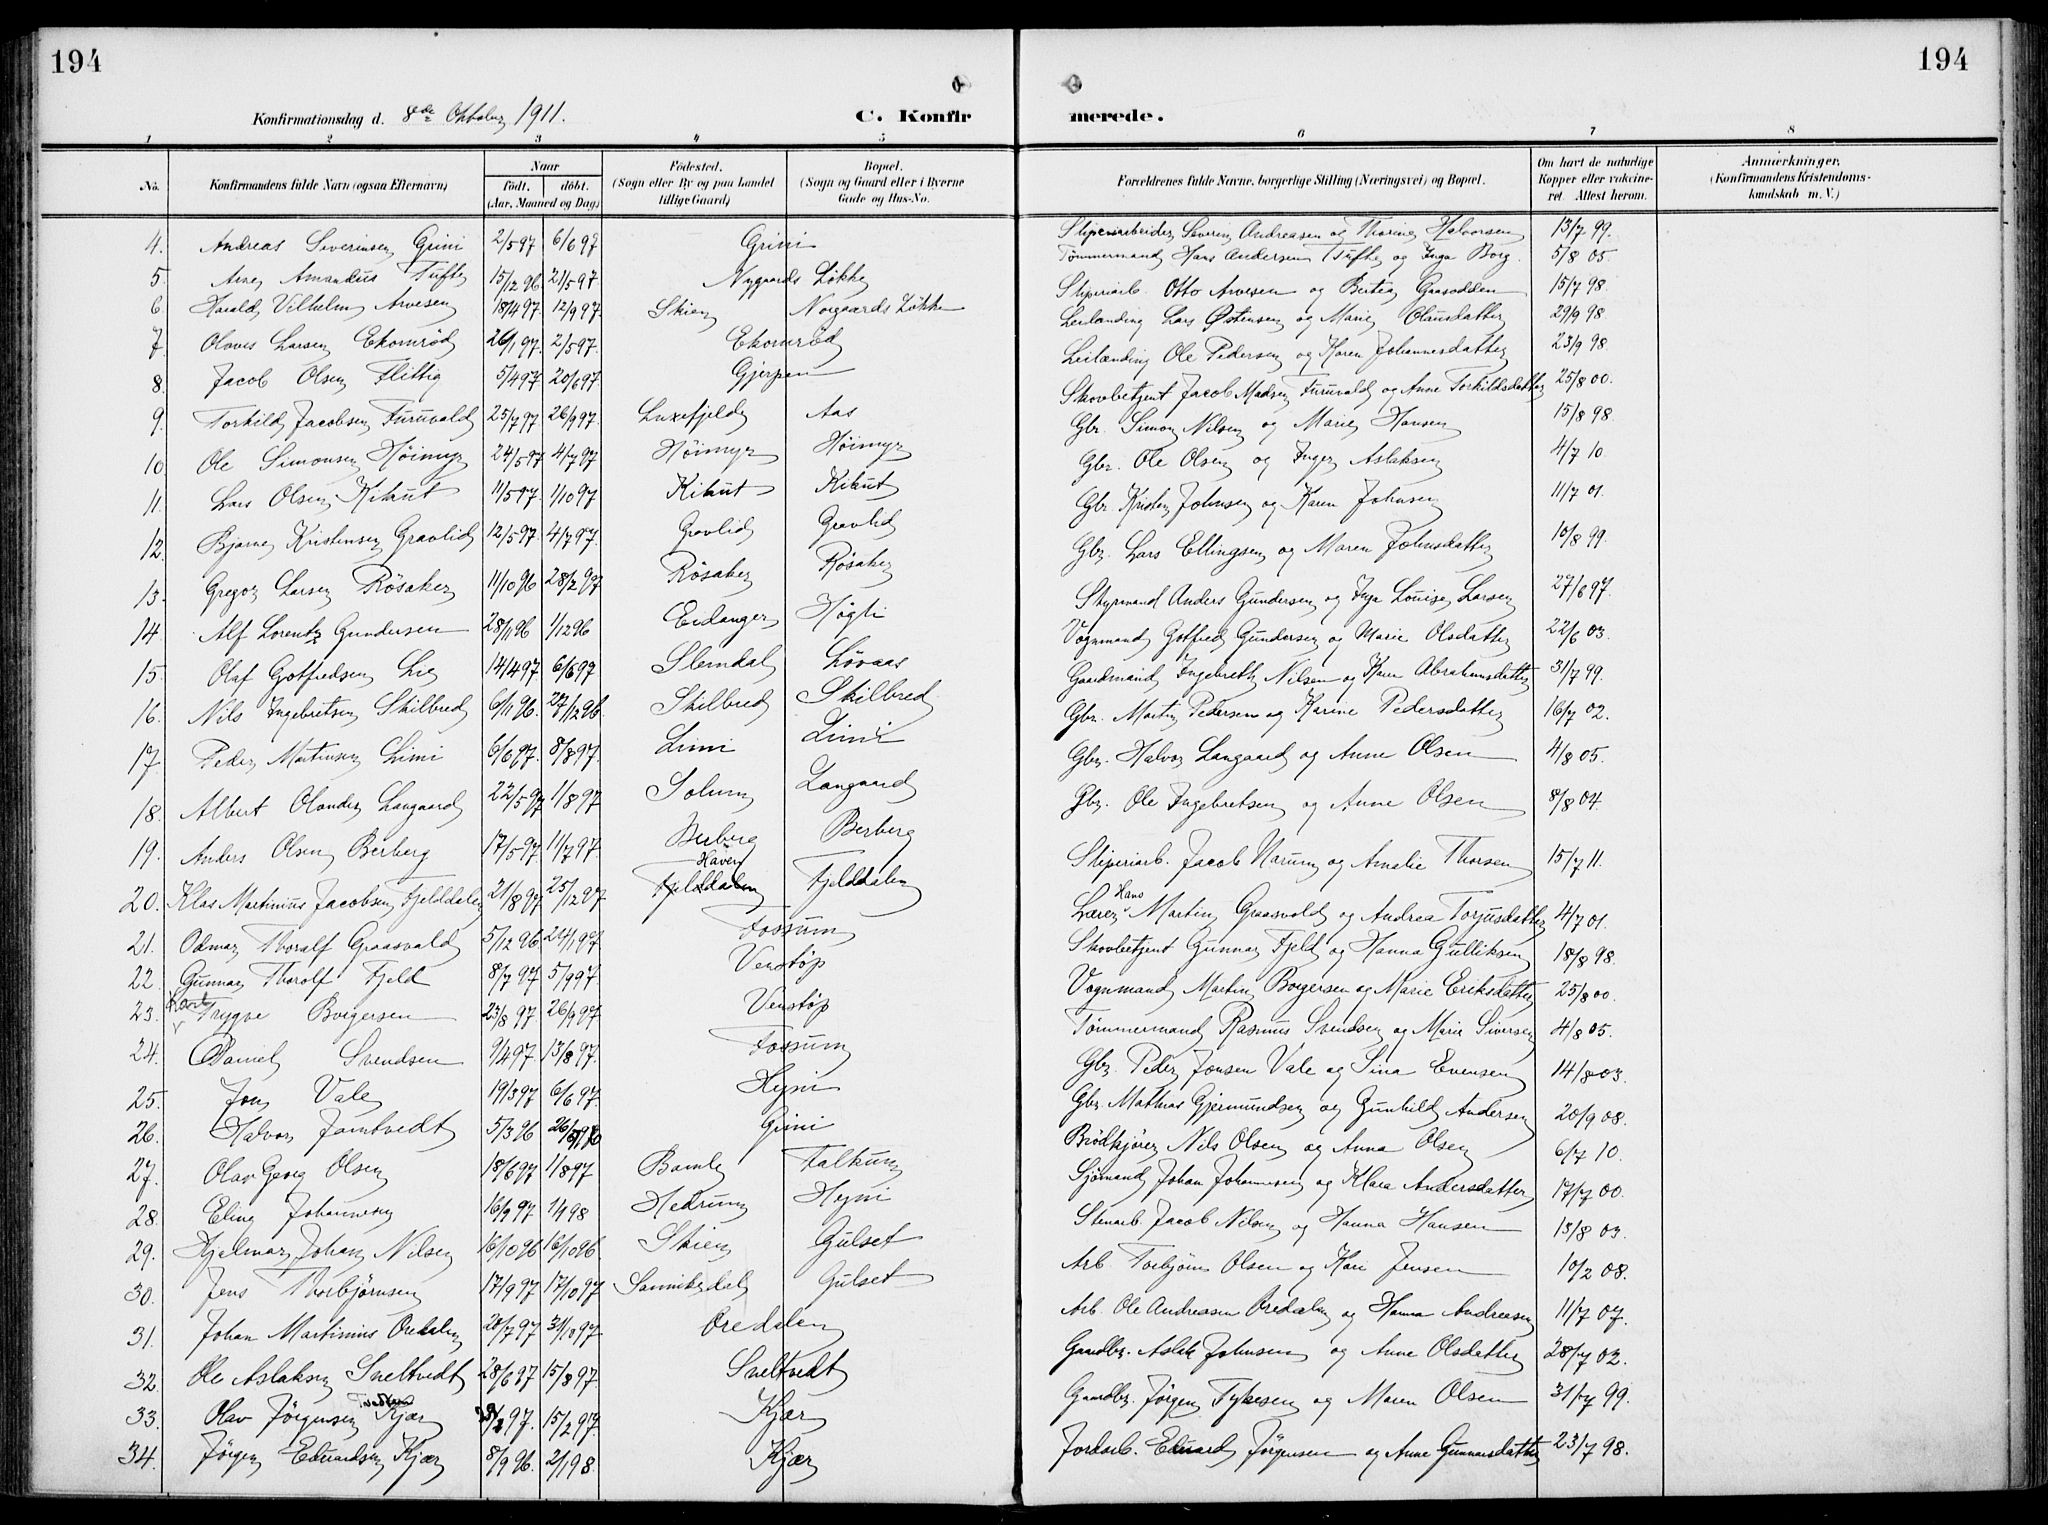 194
194
Konfirmationsdag d. 8de Oktober 1911.
C. Konfir
merede.
1 2 3 4 5 6 7 8
No. Konfirmandens fulde Navn (ogsaa Efternavn) Naar født. døbt. (Aar, Maaned og Dag) Fødested. (Sogn eller By og paa Landet tillige Gaard) Bopæl. (Sogn og Gaard eller i Byerne Gade og Hus-No. Forældrenes fulde Navne, borgerlige Stilling (Næringsvei) og Bopæl. Om havt de naturlige Kopper eller vakcineret. Attest herom. Anmærkninger. (Konfirmandens Kristendomskundskab m. V.)
4. Andreas Severinsen Grini 2/5 97 6/6 97 Grini Sliperiarbeider Severin Andreasen og Thorine Halvorsen 13/7 99.
5. Arne Amandus Tufte 15/12 96 21/5 97 Nygaards Løkke Tømmermand Hans Andersen Tufte og Inga Borg. 5/8 05.
6 Harald Vilhelm Arvesen 18/4 97 12/9 97. Skien Norgaards Løkke Sliperiarb. Otto Arvesen og Bertea Gaasodden 15/7 98.
7. Olavus Larsen Ekornrød 26/1 97. 2/5 97. Ekornrød Leilænding Lars Østensen og Marie Clausdatter 29/9 98
8. Jacob Olsen Flittig 5/4 97 20/6 97. Gjerpen Leilænding Ole Pedersen og Karen Johannesdatter 23/9 98.
9. Torkild Jacobsen Furuvald 25/7 97 26/9 97. Luxefjeld Aas Skovbetjent Jacob Madsen Furuvald og Anne Torkildsdatter 25/8 00.
10. Ole Simonsen Høimyr 24/5 97 4/7 97 Høimyr Høimyr Gbr. Simon Nilsen og Marie Hansen 15/8 98.
11. Lars Olsen Kikut 11/5 97. 1/10 97 Kikut Kikut Gbr. Ole Olsen og Inger Aslaksen 4/7 10.
12. Bjarne Kristensen Gravlid 12/5 97 4/7 97. Gravlid Gravlid Gbr. Kristen Johnsen og Karen Johnsen 11/7 01.
13. Gregor Larsen Røsaker 11/10 96 28/2 97 Røsaker Røsaker Gbr. Lars Ellingsen og Maren Johnsdatter 10/8 99.
14 Alf Lorentz Gundersen 28/1 96 1/12 96 Eidanger Høgli Styrmand Anders Gundersen og Inga Louise Larsen 27/6 97.
15. Olaf Gotfredsen Lie 14/4 97 6/6 97 Slemdal Løvaas Vognmand Gotfred Gundersen og Marie Olsdatter 22/6 03.
16. Nils Ingebretsen Skilbred 6/11 96. 27/12 96. Skilbred Skilbred Gaardmand Ingebreth Nilsen og Karen Abrahamsdatter 31/7 99.
17 Peder Martinsen Limi 6/6 97 8/8 97. Limi Limi Gbr. Martin Pedersen og Karine Pedersdatter 16/7 02.
18. Albert Olander Langaard 22/5 97 1/8 97 Solum Langaard Gbr. Halvor Langaard og Anne Olsen 4/8 05.
19. Anders Olsen Berberg 17/5 97 11/7 97. Berberg Berberg Gbr. Ole Ingebretsen og Anne Olsen 8/8 04.
20. Klas Martinius Jacobsen Fjelddalen 21/8 97 25/12 97 Haven Fjelddalen Fjelddalen Sliperiarb. Jacob Narum og Amalie Thorsen 15/7 11.
21. Odmar Thoralf Graasvold 5/12 96 24/1 97 Fossum Lærer Hans Martin Graasvold og Andrea Torjusdatter 4/7 01.
22. Gunnar Thorolf Fjeld 8/7 97 5/9 97 Venstøp Skovbetjent Gunnar Fjeld og Hanna Gulliksen 18/8 98.
23. Karl Trygve Borgersen 23/8 97. 26/9 97 Venstøp Vognmand Martin Borgersen og Marie Eriksdatter 25/8 00.
24. Daniel Svendsen 9/4 97. 13/8 97. Fossum Tømmermand Rasmus Svendsen og Marie Siversen 4/8 05.
25. Jon Vale 19/3 97 6/6 97. Hyni Gbr. Peder Jonsen Vale og Sina Evensen 14/8 03.
26. Halvor Jamtvedt 5/3 96 Grini Gbr. Mathias Gjermundsen og Gunhild Andersen 20/9 08.
27. Olav Georg Olsen 18/6 97 1/8 97 Bamle Falkum Brødkjører Nils Olsen og Anna Olsen 6/7 10.
28. Eling Johannesen 16/9 97 1/1 98 Hedrum Hyni Sjømand Johan Johannesen og Klara Andersdatter 17/7 00.
29. Hjalmar Johan Nilsen 16/10 96 16/10 96 Skien Gulset Stenarb. Jacob Nilsen og Hanna Hansen 13/8 03.
30. Jens Thorbjørnsen 17/9 97 17/10 97 Sannikedal Gulset Arb. Torbjørn Olsen og Kari Jensen 10/2 08.
31. Johan Martinius Øredalen 20/7 97 31/10 97. Øredalen Arb. Ole Andreassen Øredalen og Hanna Andreasen 11/7 07.
32. Ole Aslaksen Sneltvedt 28/6 97 15/8 97. Sneltvedt Gaardbr. Aslak Johnsen og Anne Olsdatter 28/7 02.
33. Olav Jørgensen Kjær 97. 15/2 97 Kjær Gaardbr. Jørgen Tykesen og Maren Olsen 31/7 99.
34. Jørgen Eduardsen Kjær 8/9 96. 2/1 98. Kjær Jordarb. Eduard Jørgensen og Anne Gunnarsdatter 23/7 98.